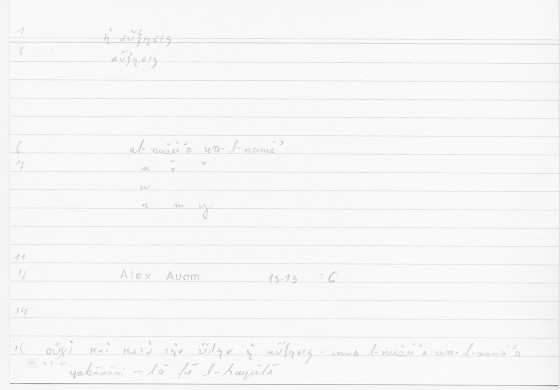 1 ἡ αὔξησις
2 αὔξησις
6 al-nušūʾa wa-l-namāʾ
7 n š ʾ
w
n m y
11
12 Alex Auam 13.13 = C
14
16 οὐχὶ καὶ κατὰ τὴν ὕλην ἡ αὔξησις - inna l-nušūʾa wa-l-namāʾa
yakūnāni - lā fī l-hayūlā